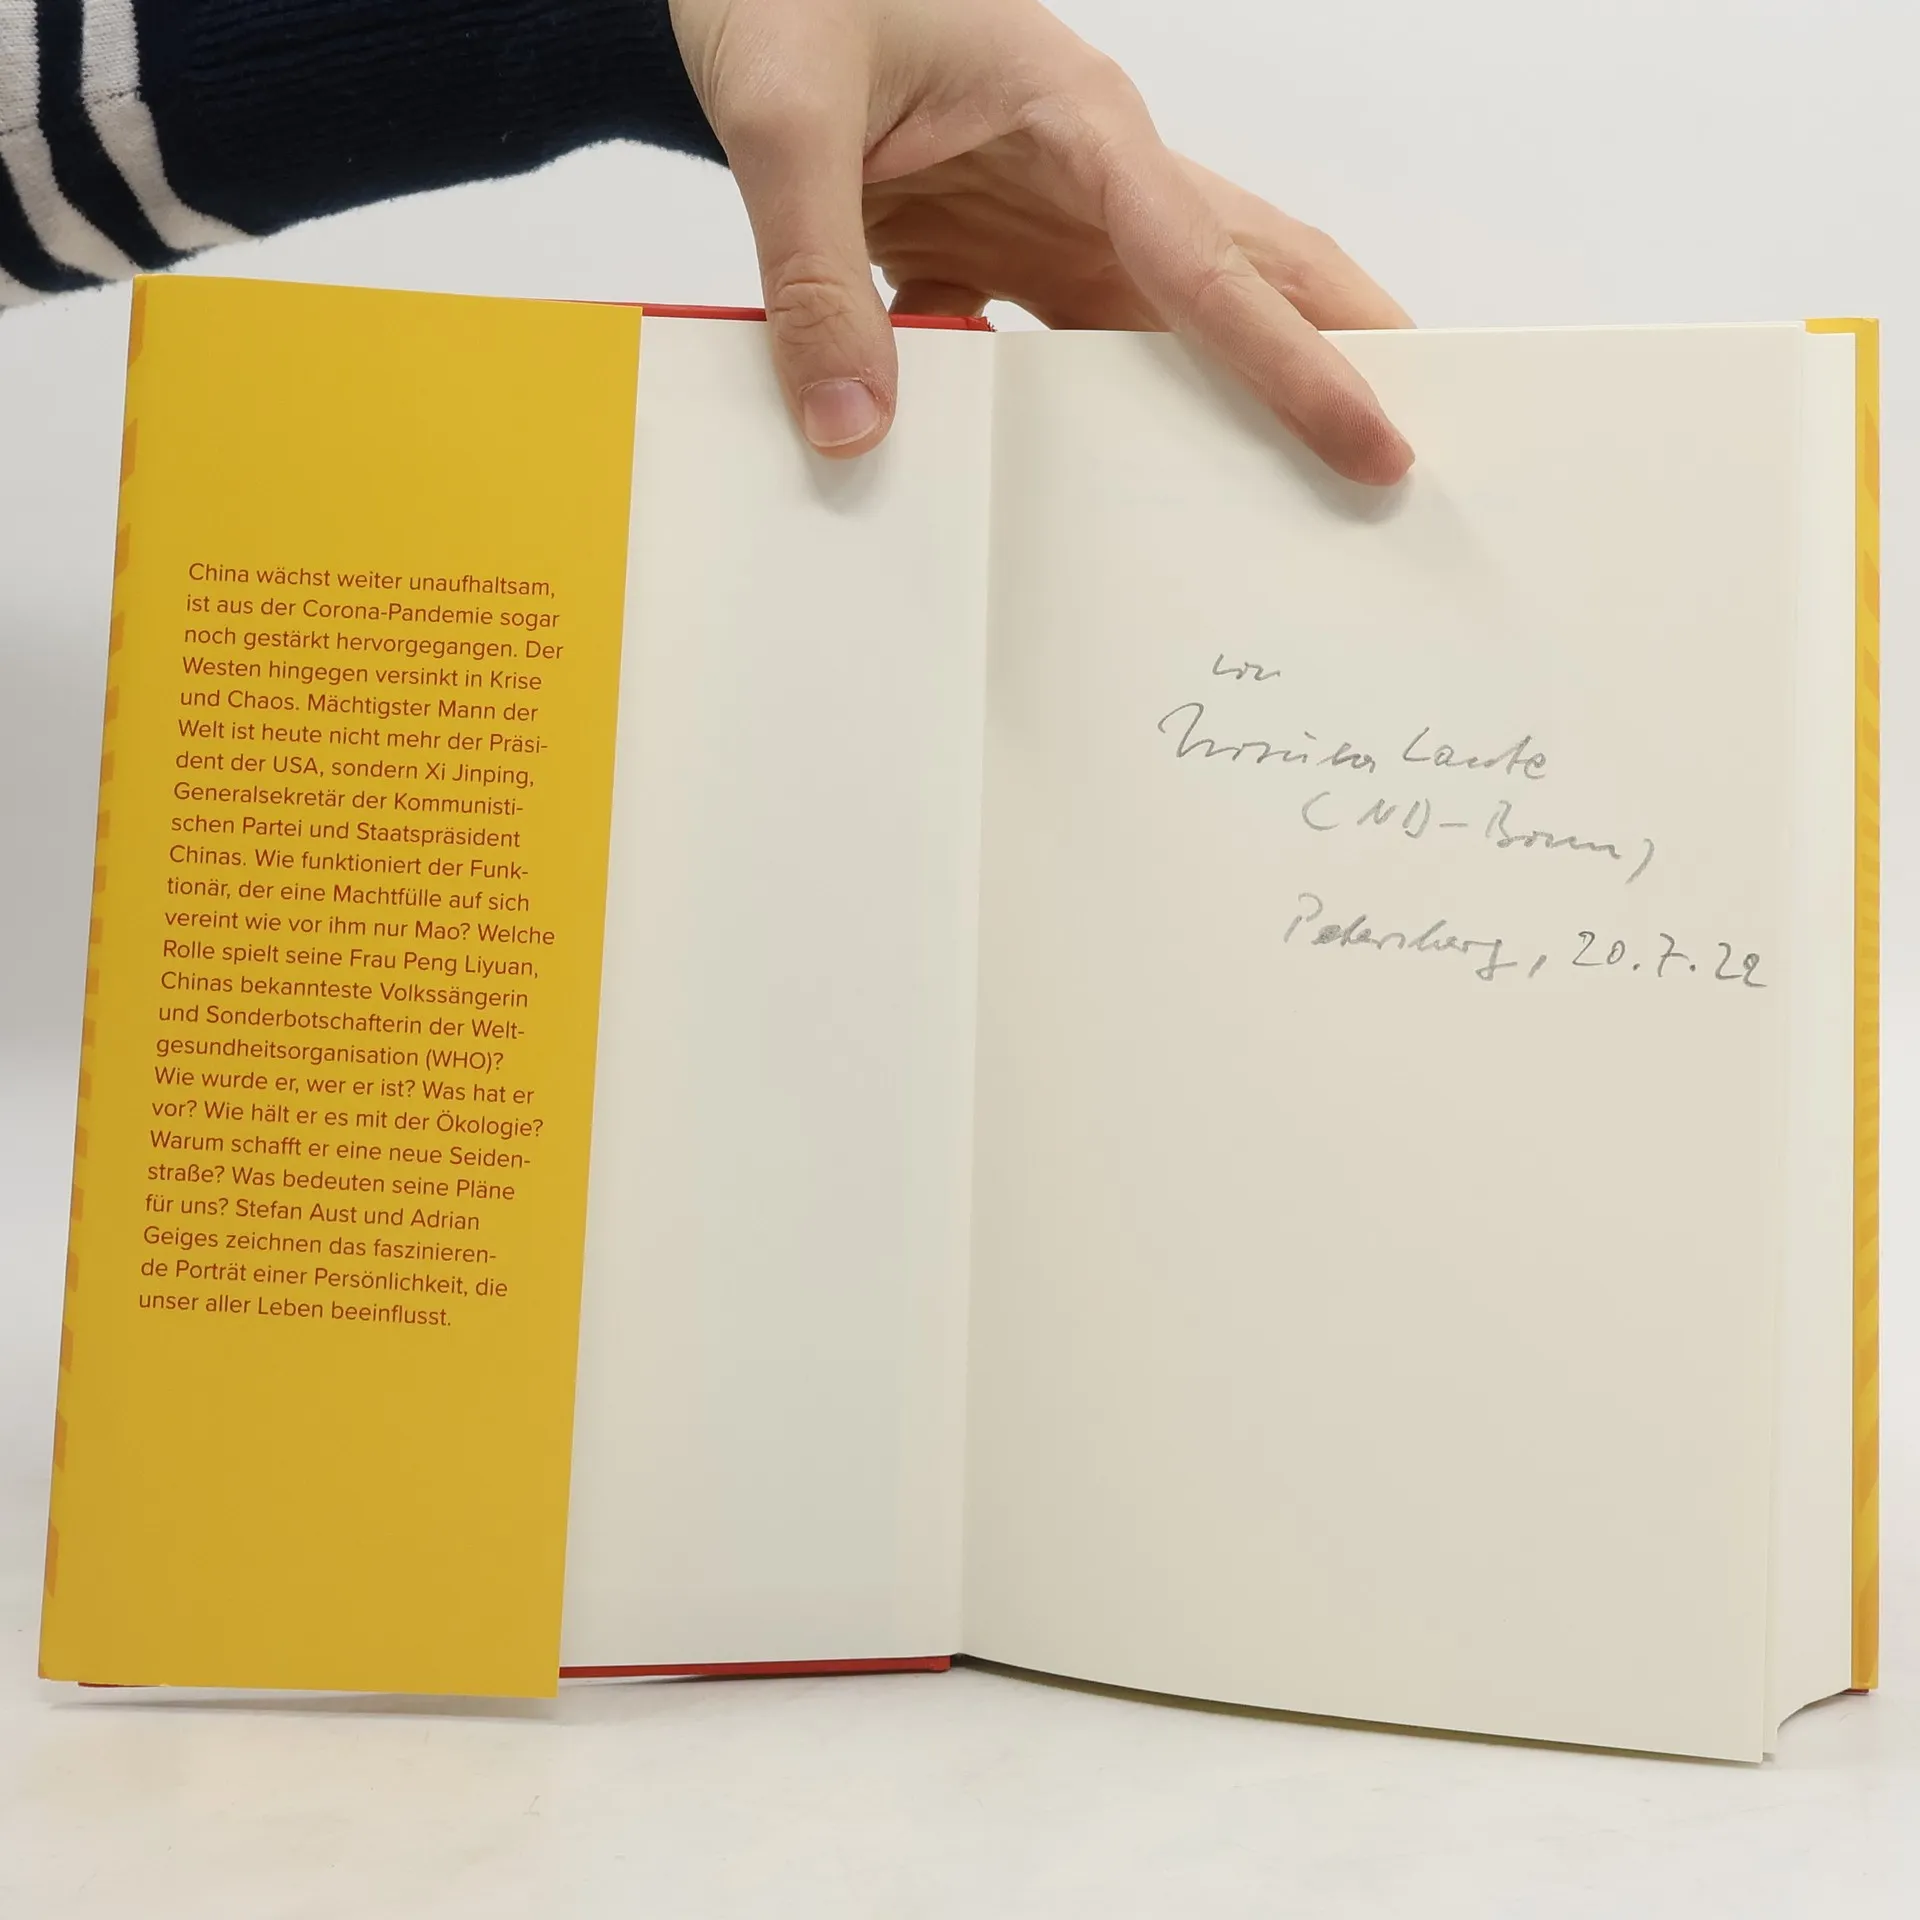 China wächst weiter unaufhaltsam,
ist aus der Corona-Pandemie sogar
noch gestärkt hervorgegangen. Der
Westen hingegen versinkt in Krise
und Chaos. Mächtigster Mann der
Welt ist heute nicht mehr der Präsi-
dent der USA, sondern Xi Jinping,
Generalsekretär der Kommunisti-
schen Partei und Staatspräsident
Chinas. Wie funktioniert der Funk-
tionär, der eine Machtfülle auf sich
vereint wie vor ihm nur Mao? Welche
Rolle spielt seine Frau Peng Liyuan,
Chinas bekannteste Volkssängerin
und Sonderbotschafterin der Welt-
gesundheitsorganisation (WHO)?
Wie wurde er, wer er ist? Was hat er
vor? Wie hält er es mit der Ökologie?
Warum schafft er eine neue Seiden-
straße? Was bedeuten seine Pläne
für uns? Stefan Aust und Adrian
Geiges zeichnen das faszinieren-
de Porträt einer Persönlichkeit, die
unser aller Leben beeinflusst.
von
Ursula
(ND-Bonn)
Petersberg, 20.7.22